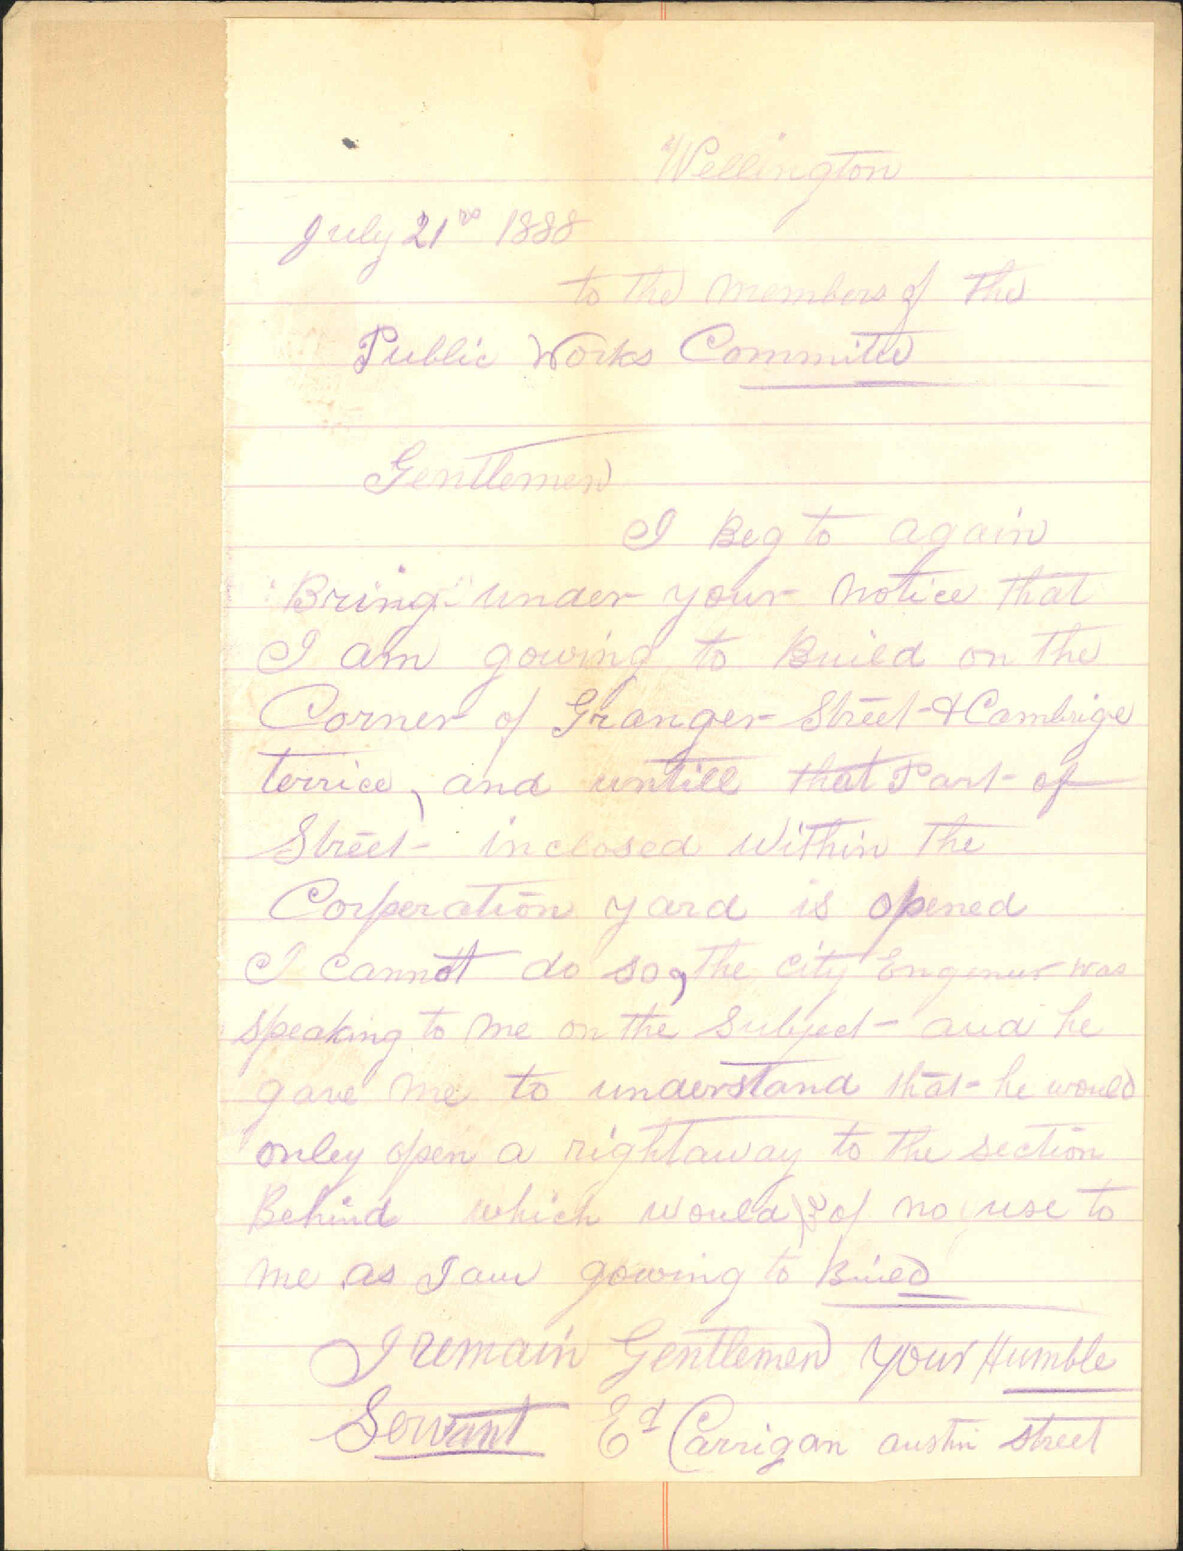 Wellington
July 21rd 1888
to the Members of the
Public Works Commitee
Gentlemen
I Beg to again
Bring under your notice that
I am gowing to Build on the
Corner of Granger Street & Cambrige
terrice, and untill that Part of
Street inclosed within the
Corperation yard is opened
I cannott do so, the City Enginer was
speaking to me on the subject and he
gave me to understand that he would
onley open a rightaway to the section
Behind which would be of no use to
me as I am gowing to Build
I remain Gentlemen your Humble
Servant Ed Carrigan austin street